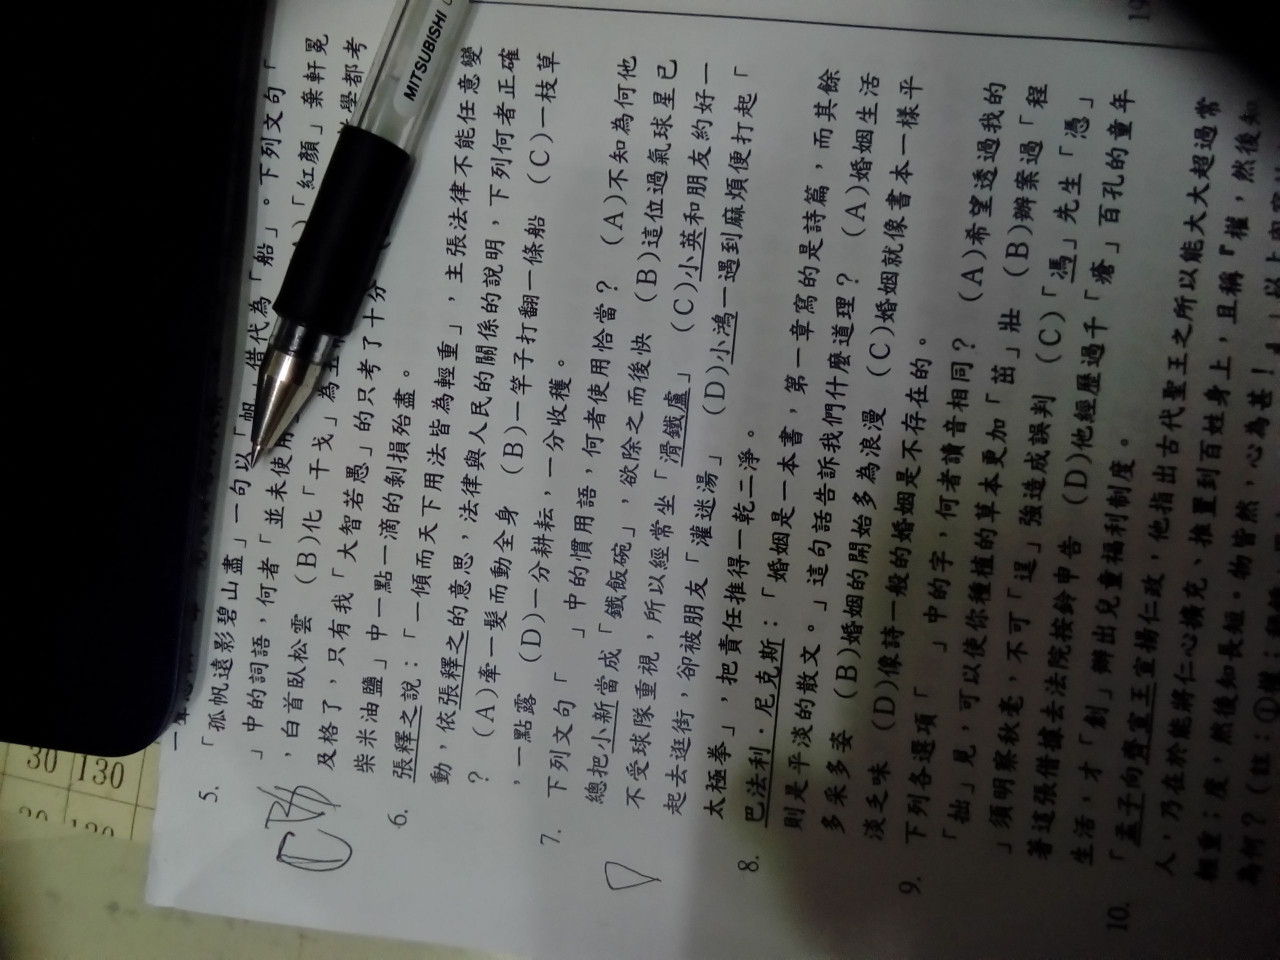 MITSUBISHI
30 130
5. 「孤帆遠影碧山盡」一句以「帆」借代為「船」。下列文句「
」中的詞語，何者「並未使用
「紅顏」棄軒冕
，白首臥松雲 (B)化「干戈」為玉
學都考
及格了，只有我「大智若愚」的只考了十分
柴米油鹽」中一點一滴的剝損殆盡。
6. 張釋之說：「一傾而天下用法皆為輕重」，主張法律不能任意變
動，依張釋之的意思，法律與人民的關係的說明，下列何者正確
？ (A)牽一髮而動全身 (B)一竿子打翻一條船 (C)一枝草
，一點露 (D)一分耕耘，一分收穫。
7. 下列文句「　」中的慣用語，何者使用恰當？ (A)不知為何他
總把小新當成「鐵飯碗」，欲除之而後快 (B)這位過氣球星已
不受球隊重視，所以經常坐「滑鐵盧」 (C)小英和朋友約好一
起去逛街，卻被朋友「灌迷湯」 (D)小鴻一遇到麻煩便打起「
太極拳」，把責任推得一乾二淨。
8. 巴法利．尼克斯：「婚姻是一本書，第一章寫的是詩篇，而其餘
則是平淡的散文。」這句話告訴我們什麼道理？ (A)婚姻生活
多采多姿 (B)婚姻的開始多為浪漫 (C)婚姻就像書本一樣平
淡乏味 (D)像詩一般的婚姻是不存在的。
9. 下列各選項「　」中的字，何者讀音相同？ (A)希望透過我的
「拙」見，可以使你種植的草本更加「茁」壯 (B)辦案過「程
」須明察秋毫，不可「逞」強造成誤判 (C)「馮」先生「憑」
著這張借據去法院按鈴申告 (D)他經歷過千「瘡」百孔的童年
生活，才「創」辦出兒童福利制度。
10. 「孟子向齊宣王宣揚仁政，他指出古代聖王之所以能大大超過常
人，乃在於能將仁心擴充、推置到百姓身上，且稱『權，然後知
輕重；度，然後知長短。物皆然，心為甚！』
為何？（註：①權：
19